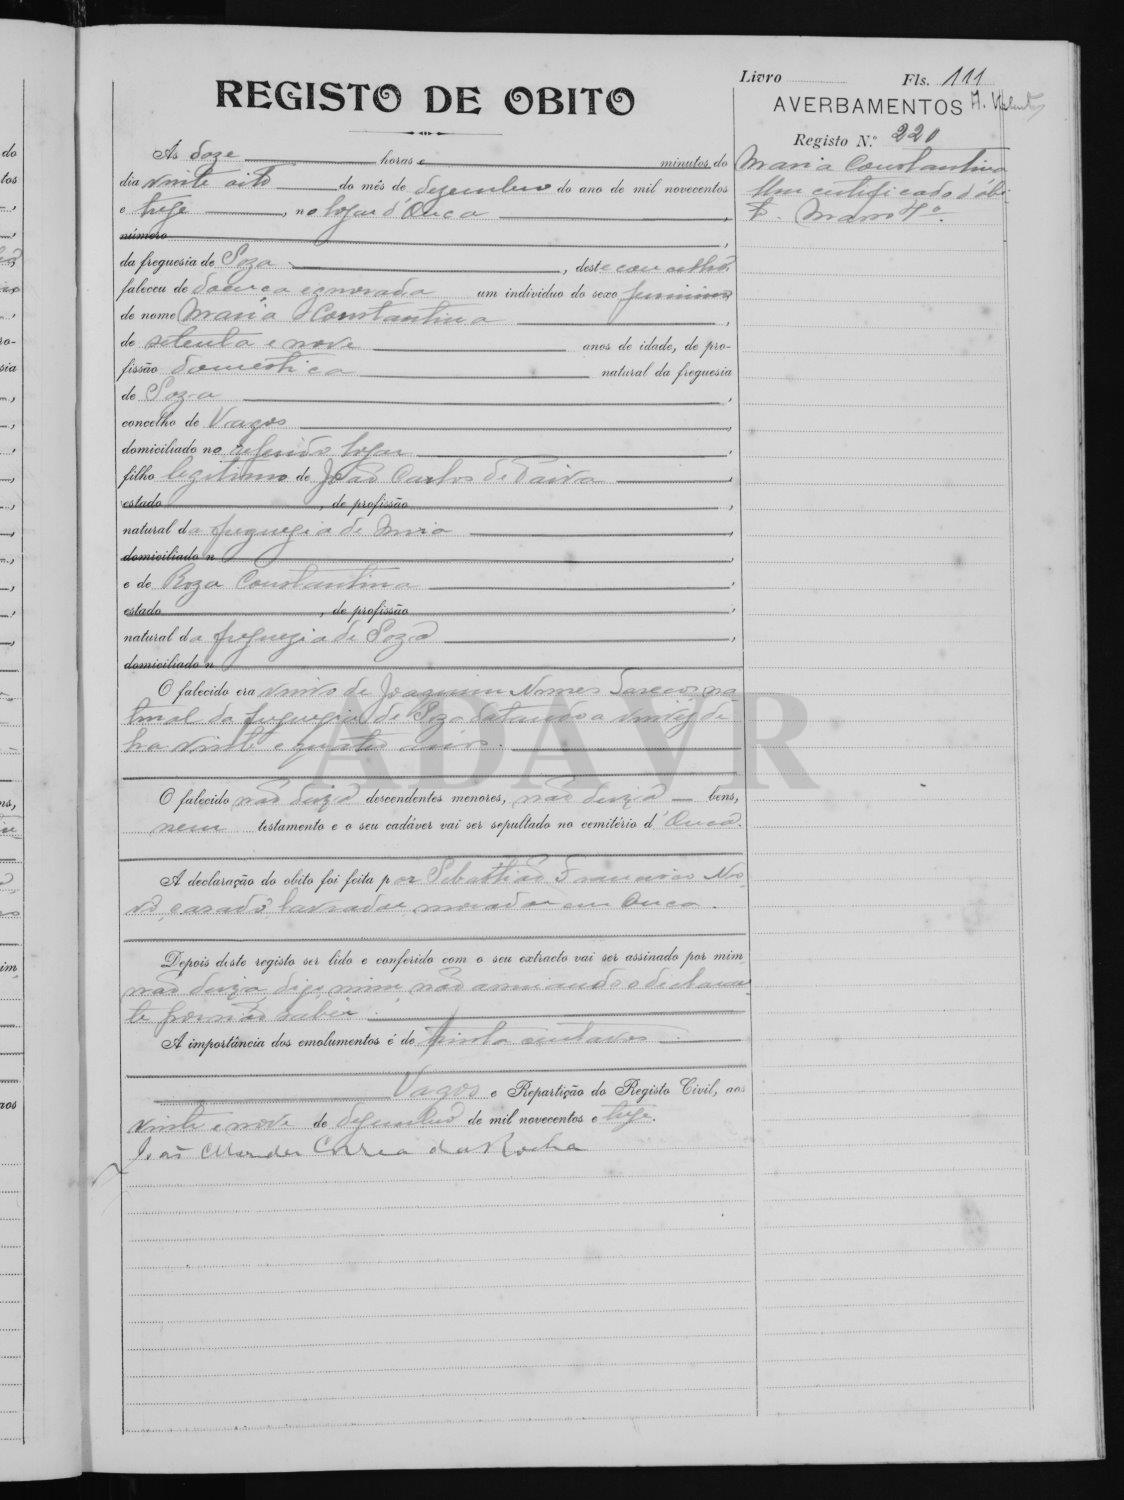 REGISTO DE OBITO
Livro Fls. 111
AVERBAMENTOS
Registo N.º 220
Maria Constantina
Um certificado d'óbi-
to.
As doze horas e minutos do
dia vinte oito do mês de dezembro do ano de mil novecentos
e treze, no logar d'Ouca,
número,
da freguesia de Soza, deste concelho,
faleceu de doença ignorada um individuo do sexo feminino
de nome Maria Constantina,
de setenta e nove anos de idade, de pro-
fissão domestica natural da freguesia
de Soza,
concelho de Vagos,
domiciliado no referido logar,
filho legitimo de João Carlos de Paiva,
estado, de profissão,
natural da freguezia de,
domiciliado n,
e de Roza Constantina,
estado, de profissão,
natural da freguezia de Soza,
domiciliado n
O falecido era viuvo de Joaquim Nunes na
tural da freguezia de Soza datando a viuvez de
ha vinte e quatro anos.
O falecido não deixa descendentes menores, não deixa bens,
nem testamento e o seu cadáver vai ser sepultado no cemitério d'Ouca.
A declaração do obito foi feita por Sebastião Francisco No
vo, casado lavrador morador em Ouca.
Depois deste registo ser lido e conferido com o seu extracto vai ser assinado por mim
não deixa, digo, mim, não assinando o declaran
te por não saber.
A importância dos emolumentos é de trinta centavos.
Vagos e Repartição do Registo Civil, aos
vinte e nove de dezembro de mil novecentos e treze.
João Mendes Correa da Rocha
ADAVR
do
tos
ro-
sia
ns,
im
aos